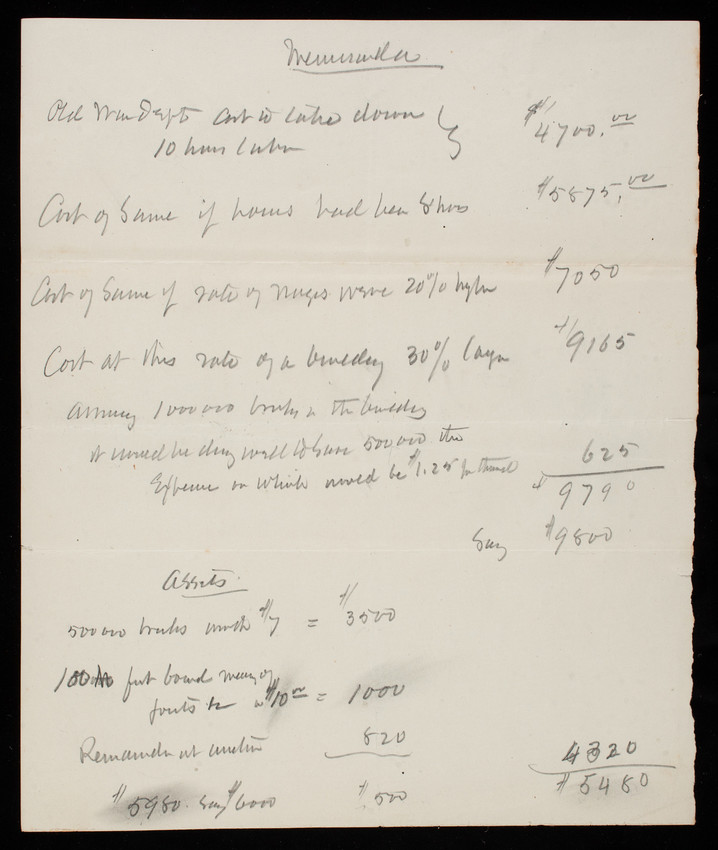 Memoranda
Old War Dept Cost to take down $4700.00
10 hours labor
Cost of Same if hours had been 8 hrs $5875.00
Cost of Same if rate of wages were 20% higher $7050
Cost at this rate of a building 30% larger $9165
Assuming 1000000 bricks in the building
it would be doing well to save 500000 the
Expense on which would be $1.25 per thousd 625
$9790
Say $9800
Assets
500000 bricks worth $7 = $3500
feet board meas of
joists $10.00 = 1000
Remainder at auction 820 4320
$5980. Say $6000 $500 $5480